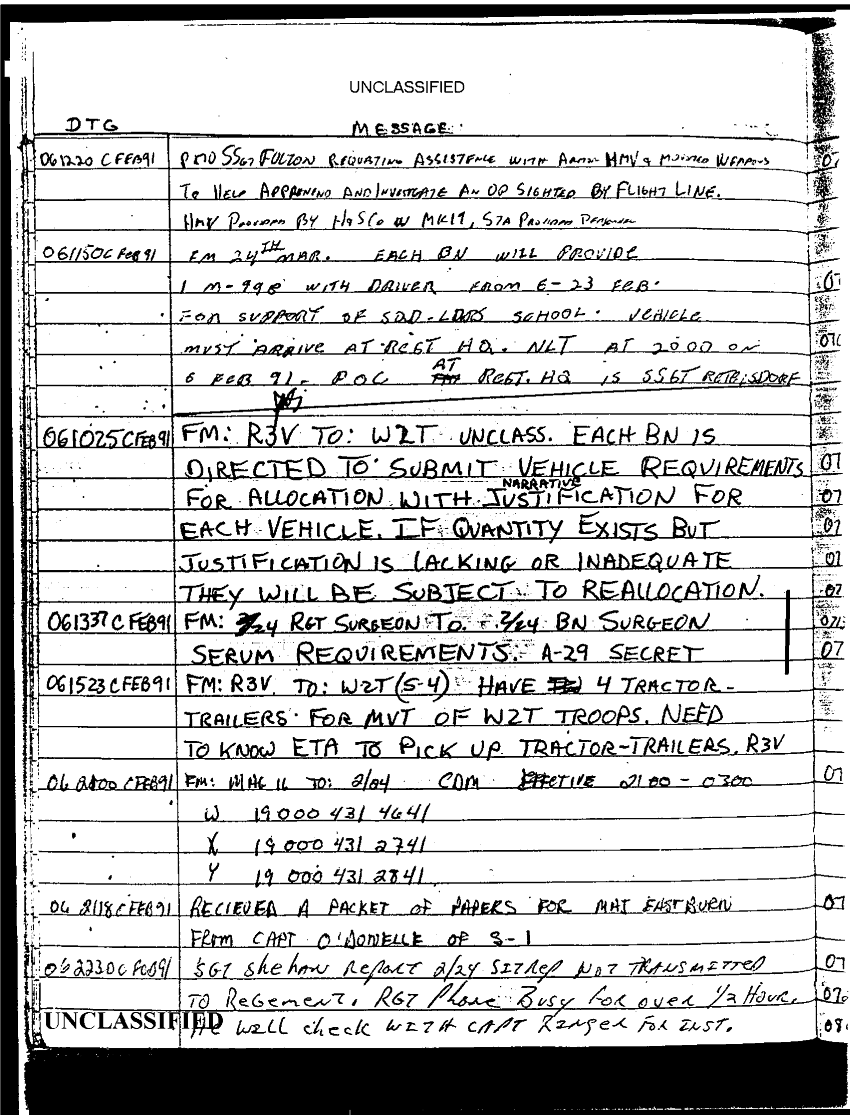 UNCLASSIFIED
DTG MESSAGE
061220 C FEB91 PMO SSGT FULTON REQUATING ASSISTENCE WITH HMV & MOUNTED WEAPONS
TO HELP AND INVESTIGATE AN OP SIGHTED BY FLIGHT LINE.
HMV BY H&SCo W MK19, STA
061150 C FEB 91 FM 24TH MAR. EACH BN WILL PROVIDE
1 M-998 WITH DRIVER FROM 6-23 FEB.
FOR SUPPORT OF SQD-LDRS SCHOOL. VEHICLE
MUST ARRIVE AT REGT HQ. NLT AT 2000 ON
6 FEB 91. POC AT REGT. HQ IS SSGT
061025 C FEB91 FM: R3V TO: W2T UNCLASS. EACH BN IS
DIRECTED TO SUBMIT VEHICLE REQUIREMENTS
FOR ALLOCATION WITH NARRATIVE JUSTIFICATION FOR
EACH VEHICLE. IF QUANTITY EXISTS BUT
JUSTIFICATION IS LACKING OR INADEQUATE
THEY WILL BE SUBJECT TO REALLOCATION.
061337 C FEB91 FM: RGT SURGEON TO: 2/24 BN SURGEON
SERUM REQUIREMENTS. A-29 SECRET
061523 C FEB91 FM: R3V. TO: W2T (S-4) HAVE 4 TRACTOR-
TRAILERS FOR MVT OF W2T TROOPS. NEED
TO KNOW ETA TO PICK UP TRACTOR-TRAILERS. R3V
06 2100 C FEB91 FM: MAG 16 TO: 2/24 CDM EFFECTIVE 2100 - 0300
W 19 000 431 4641
X 19 000 431 2741
Y 19 000 431 2841
06 2118 C FEB91 RECIEVED A PACKET OF PAPERS FOR MAJ EASTBURN
FROM CAPT O'DONELLE OF S-1
06 2230 C FEB91 SGT Shehan Report 2/24 SITREP NOT TRANSMITTED
TO Regement. RGT Phone Busy For over 1/2 Hour.
He will check WITH CAPT Ringer For INST.
UNCLASSIFIED